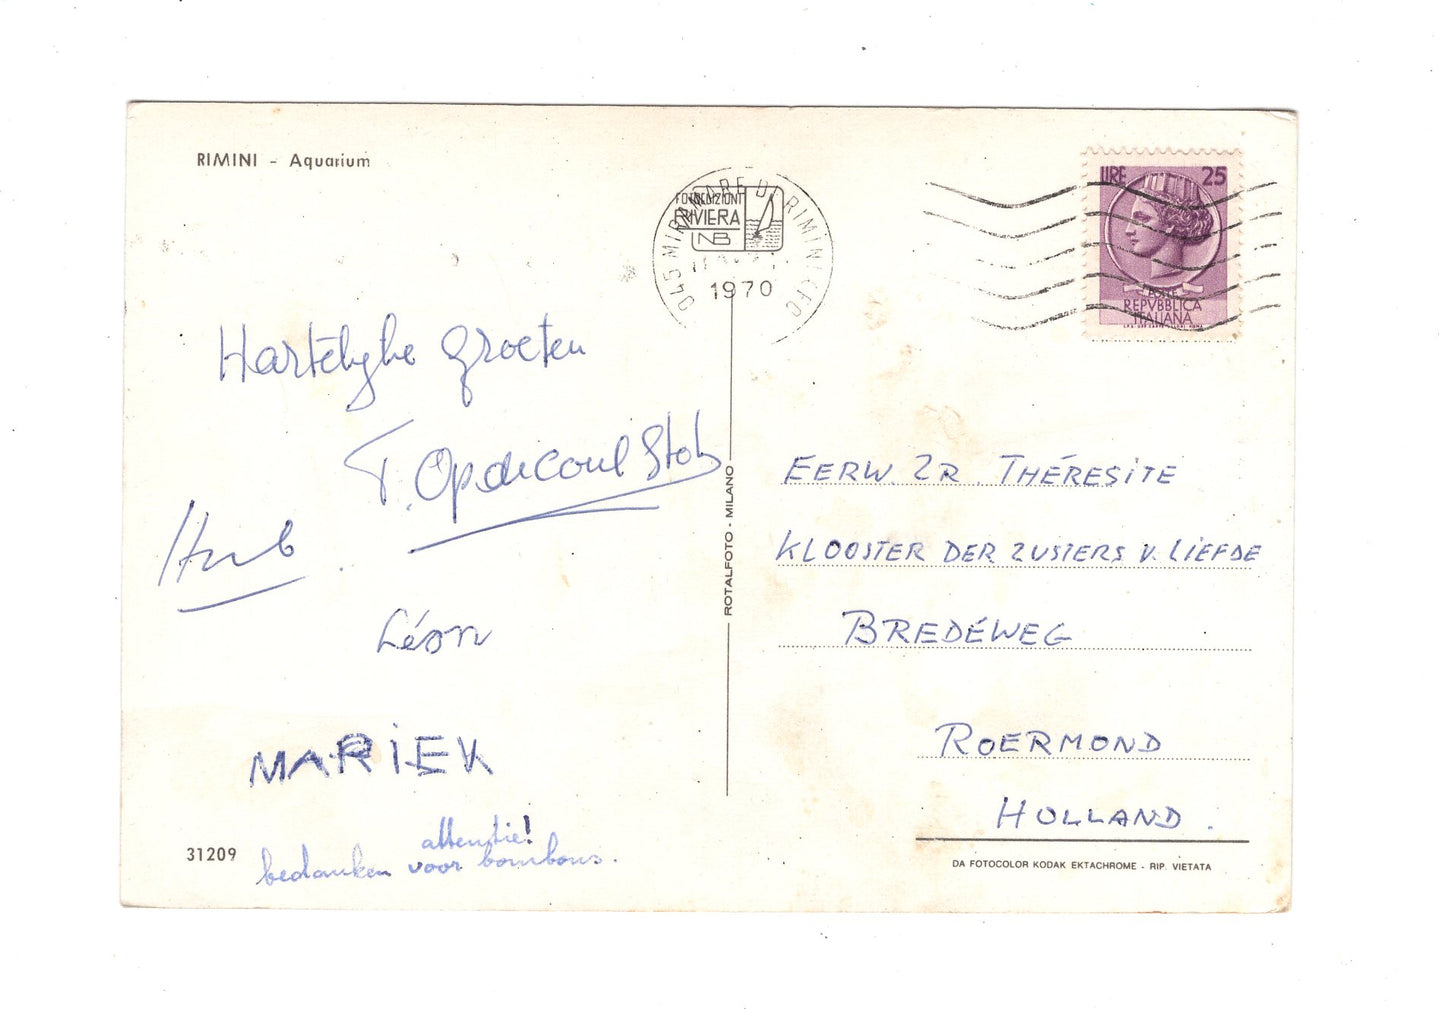 RIMINI - Aquarium
FOTOEDIZIONI
RIVIERA
NB
045 MIRAMARE DI RIMINI
1970
LIRE 25
POSTE
REPVBBLICA
ITALIANA
Hartelyke groeten
T. Opdecoul Stols
Hub.
Léon
MARIEK
attentie!
bedanken voor bonbons.
31209
ROTALFOTO - MILANO
EERW. ZR. THÉRESITE
KLOOSTER DER ZUSTERS V. LIEFDE
BREDÉWEG
ROERMOND
HOLLAND.
DA FOTOCOLOR KODAK EKTACHROME - RIP. VIETATA